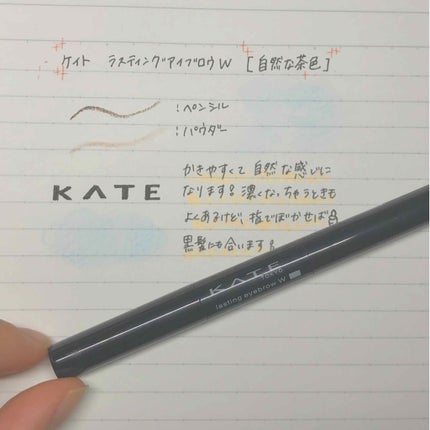 ケイト ラスティングアイブロウW [自然な茶色]
：ペンシル
：パウダー
かきやすくて自然な感じに
KATE
なります！濃くなっちゃうときも
よくあるけど、指でぼかせば
黒髪にも合います！
KATE
TOKYO
lasting eyebrow W